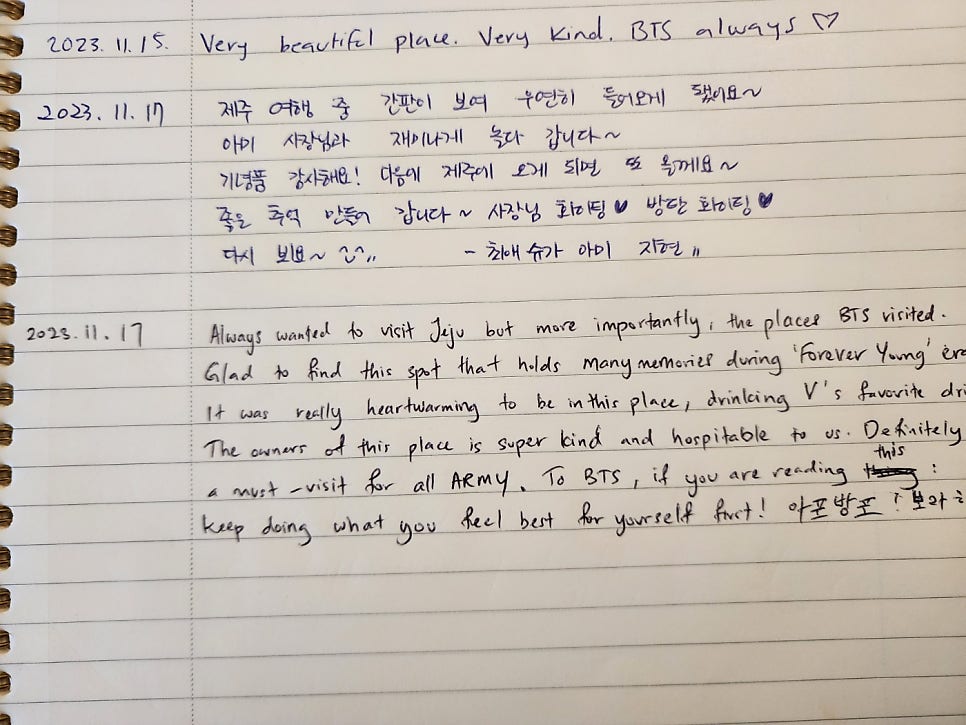 2023. 11. 15. Very beautiful place. Very kind. BTS always ♡
2023. 11. 17 제주 여행 중 간판이 보여 우연히 들어오게 됐어요~
아미 사장님과 재미나게 놀다 갑니다~
기념품 감사해요! 다음에 제주에 오게 되면 또 올께요~
좋은 추억 만들어 갑니다~ 사장님 화이팅♥ 방탄 화이팅♥
다시 봬요~ ^^,, - 최애 슈가 아미 지현 〃
2023. 11. 17 Always wanted to visit Jeju but more importantly, the places BTS visited.
Glad to find this spot that holds many memories during 'Forever Young' era
It was really heartwarming to be in this place, drinking V's favorite dri
The owners of this place is super kind and hospitable to us. Definitely
a must-visit for all ARMY. To BTS, if you are reading this :
keep doing what you feel best for yourself first! 아포방포! 보라